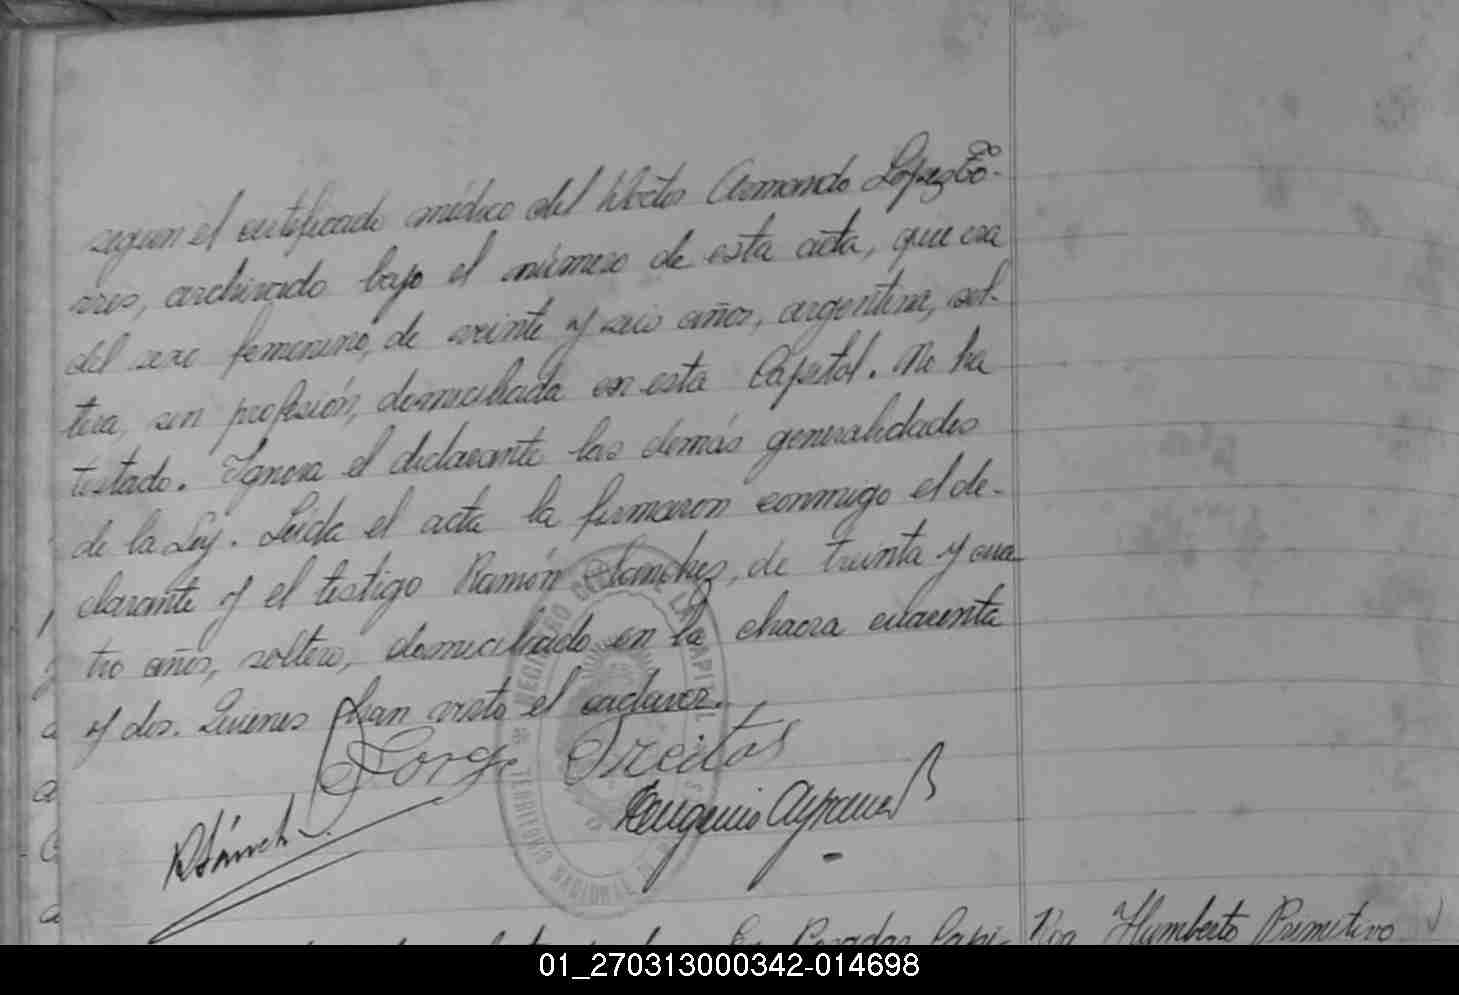 segun el certificado médico del Doctor Armando López To-
rres, archivado bajo el número de esta acta, que era
del sexo femenino, de veinte y seis años, argentina, sol-
tera, sin profesión, domiciliada en esta Capital. No ha
testado. Ignora el declarante las demás generalidades
de la Ley. Leida el acta la firmaron conmigo el de-
clarante y el testigo Ramón Sanchez, de treinta y cua
tro años, soltero, domiciliado en la chacra cuarenta
y dos. Quienes han visto el cadaver.
Jorge Freitas
Eugenio
RSánch
REGISTRO CIVIL DE LA CAPITAL
TERRITORIO NACIONAL DE MISIONES
En Posadas Capi-
Humberto Primitivo
01_270313000342-014698